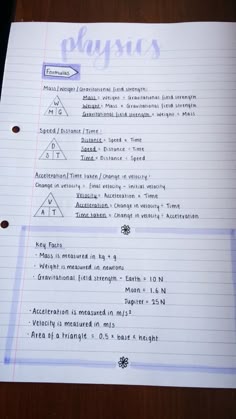 physics
Formulas
Mass / Weight / Gravitational field strength:
W
M G
Mass = Weight ÷ Gravitational field strength
Weight = Mass × Gravitational field strength
Gravitational field strength = Weight ÷ Mass
Speed / Distance / Time:
D
S T
Distance = Speed × Time
Speed = Distance ÷ Time
Time = Distance ÷ Speed
Acceleration / Time taken / Change in velocity:
Change in velocity = final velocity - initial velocity
V
A T
Velocity = Acceleration × Time
Acceleration = Change in velocity ÷ Time
Time taken = Change in velocity ÷ Acceleration
Key Facts
- Mass is measured in kg + g
- Weight is measured in newtons
- Gravitational field strength - Earth = 10 N
Moon = 1.6 N
Jupiter = 25 N
- Acceleration is measured in m/s²
- Velocity is measured in m/s
- Area of a triangle = 0.5 × base × height